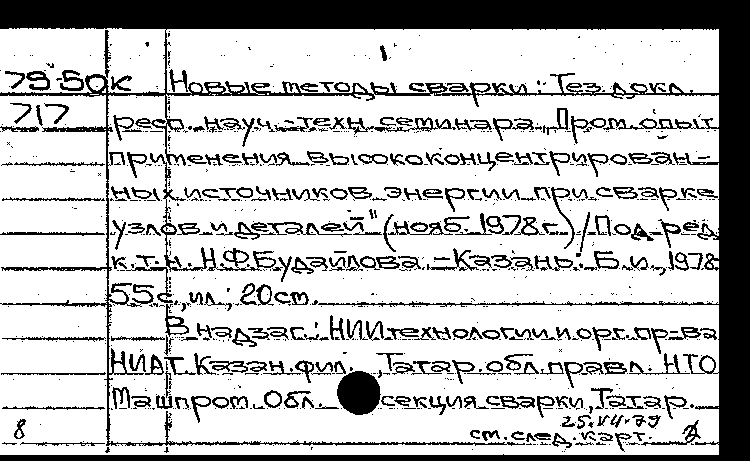 79-50к Новые методы сварки: Тез. докл.
717 респ. науч.-техн. семинара „Пром. опыт
применения высококонцентрирован-
ных источников энергии при сварке
узлов и деталей" (нояб. 1978 г.) / Под ред.
к.т.н. Н.Ф. Будайлова. - Казань: Б.и., 1978
55 с., ил.; 20 см.
В надзаг.: НИИ технологии и орг. пр-ва
НИАТ. Казан. фил. , Татар. обл. правл. НТО
Машпром. Обл. секция сварки, Татар.
25.VII.79
8 см. след. карт.